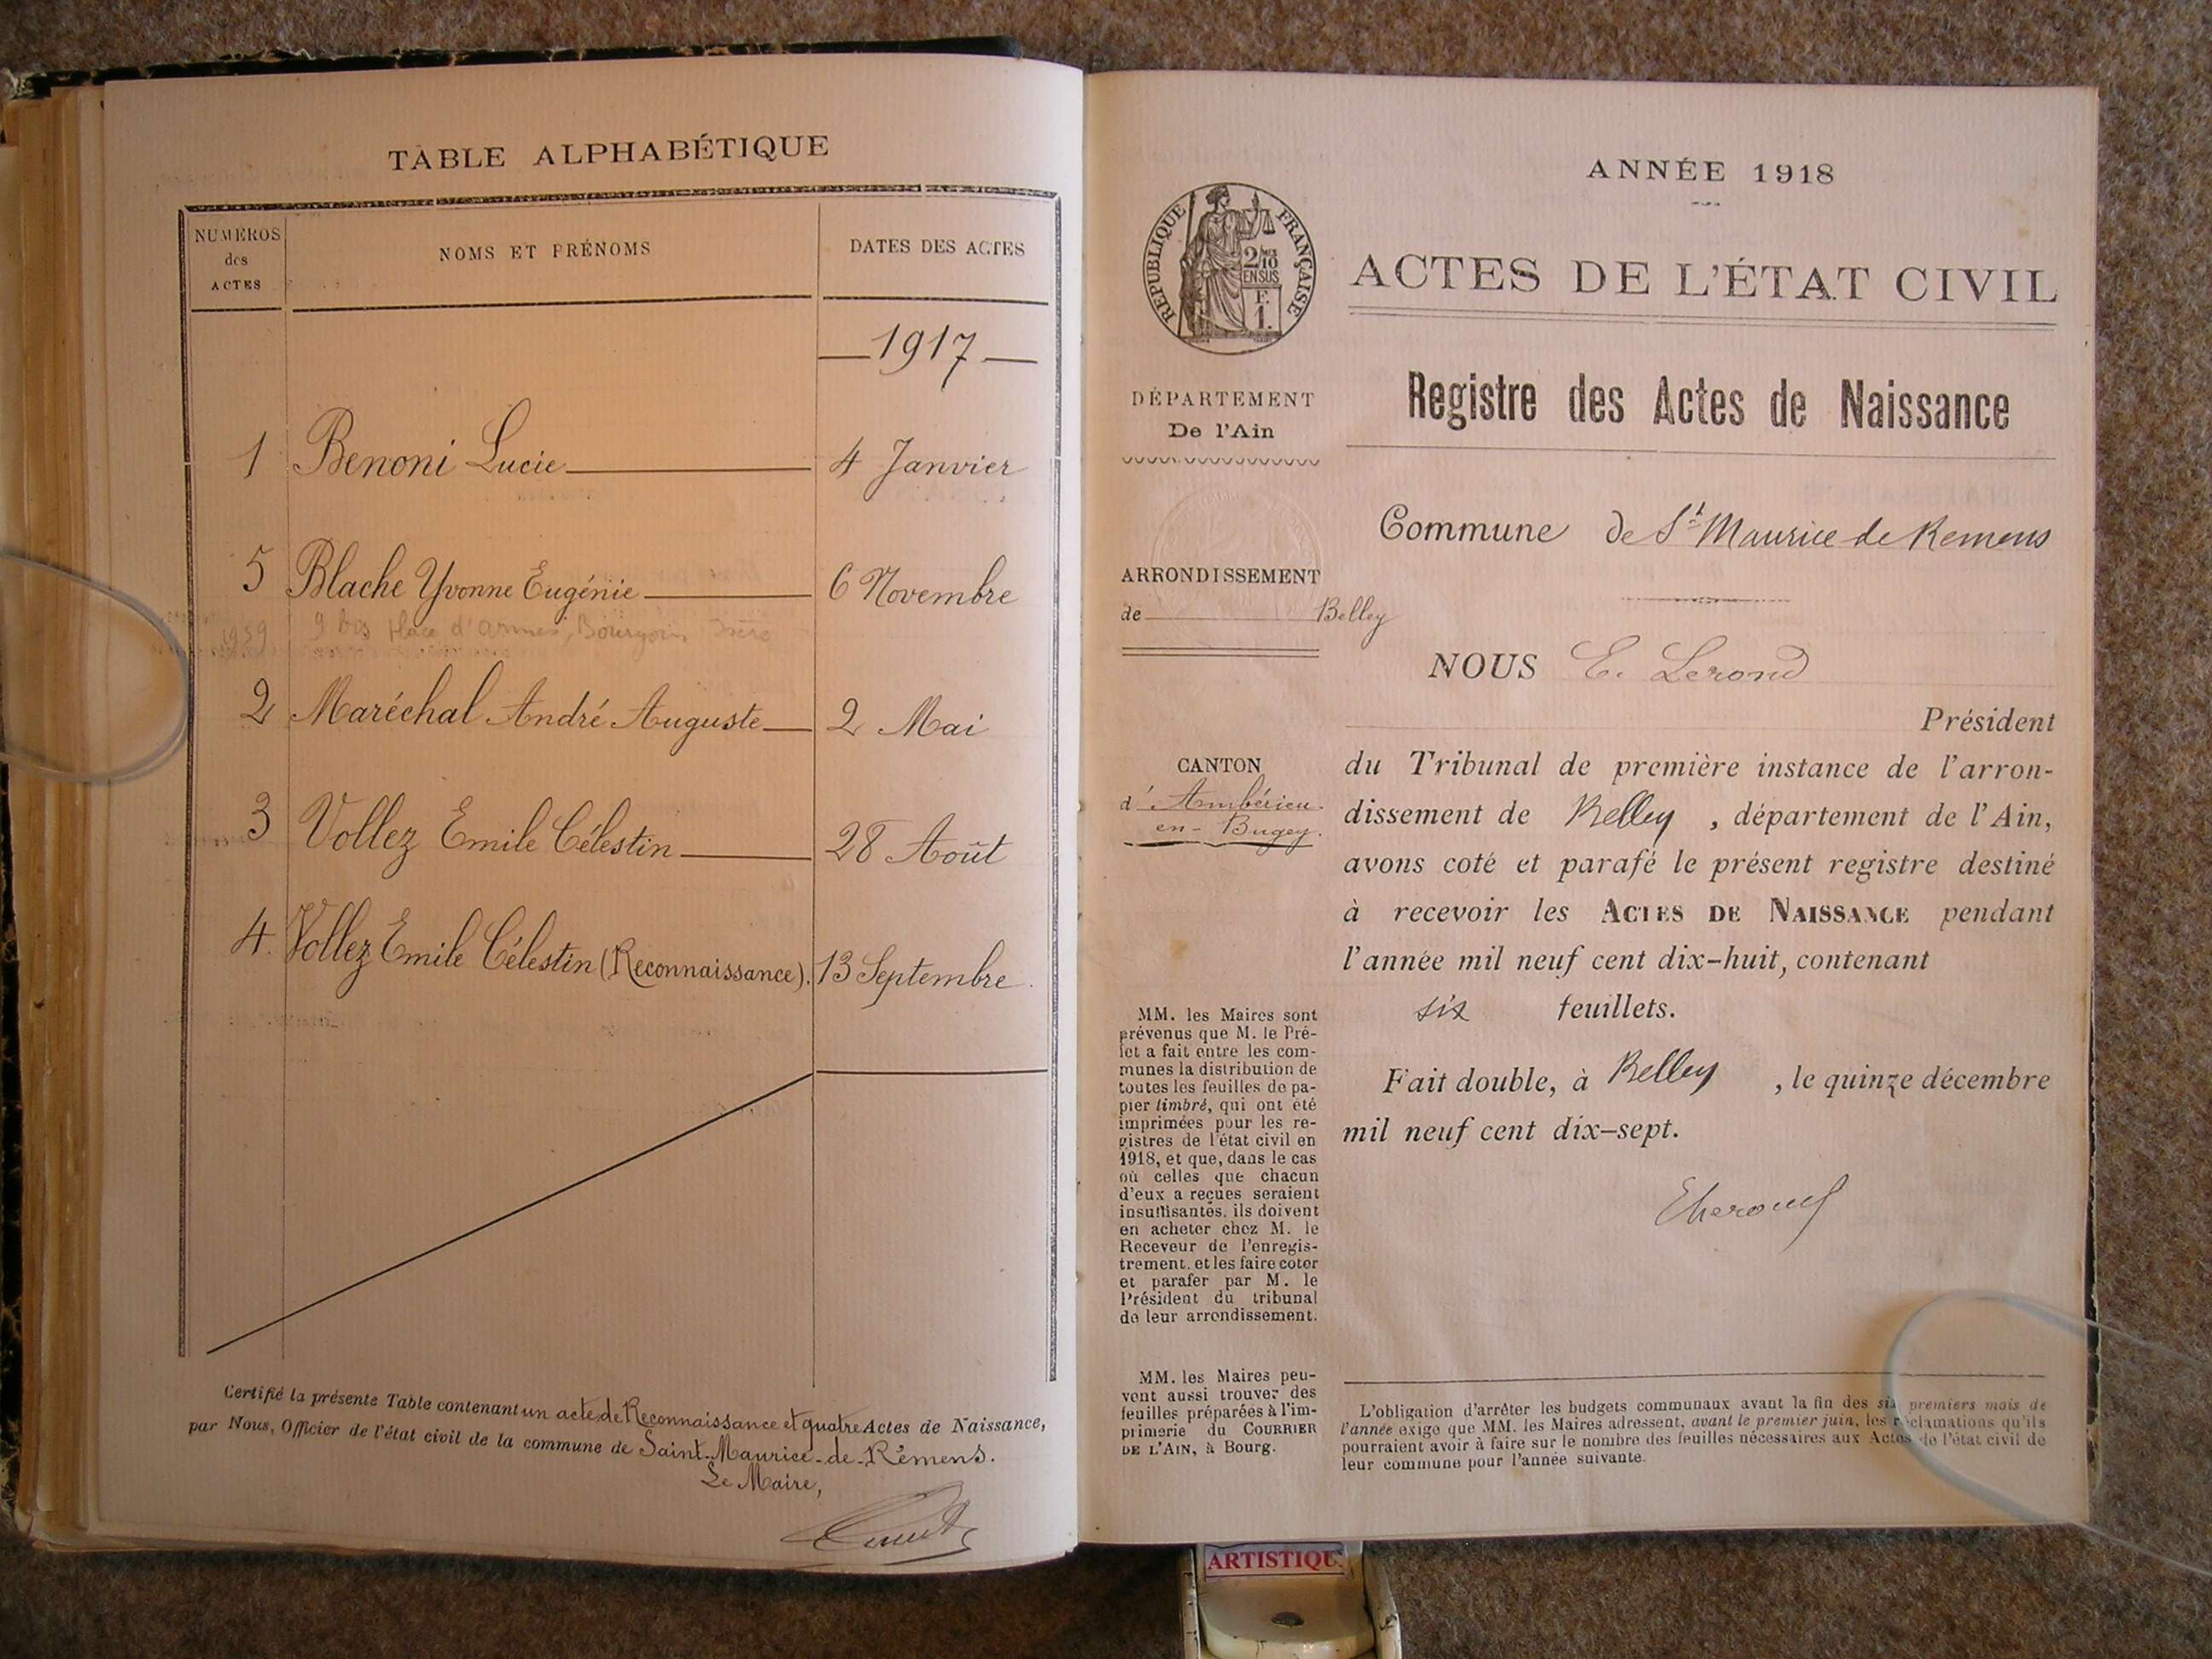 TABLE ALPHABÉTIQUE
NUMÉROS
des
ACTES
NOMS ET PRÉNOMS
DATES DES ACTES
1917
1 Benoni Lucie 4 Janvier
5 Blache Yvonne Eugénie 6 Novembre
1959 9 bis place d'armes, Bourgoin Isère
2 Maréchal André Auguste 2 Mai
3 Vollez Emile Célestin 28 Août
4. Vollez Emile Célestin (Reconnaissance). 13 Septembre.
Certifié la présente Table contenant un acte de Reconnaissance et quatre Actes de Naissance,
par Nous, Officier de l'état civil de la commune de Saint-Maurice-de-Rémens.
Le Maire,
ANNÉE 1918
RÉPUBLIQUE FRANÇAISE
2/10
EN SUS
F.
1.
ACTES DE L'ÉTAT CIVIL
Registre des Actes de Naissance
DÉPARTEMENT
De l'Ain
ARRONDISSEMENT
de Belley
CANTON
d'Ambérieu-
en-Bugey.
MM. les Maires sont
prévenus que M. le Pré-
fet a fait entre les com-
munes la distribution de
toutes les feuilles de pa-
pier timbré, qui ont été
imprimées pour les re-
gistres de l'état civil en
1918, et que, dans le cas
où celles que chacun
d'eux a reçues seraient
insuffisantes, ils doivent
en acheter chez M. le
Receveur de l'enregis-
trement, et les faire coter
et parafer par M. le
Président du tribunal
de leur arrondissement.
MM. les Maires peu-
vent aussi trouver des
feuilles préparées à l'im-
primerie du COURRIER
DE L'AIN, à Bourg.
Commune de St Maurice de Remens
NOUS E. Lerond
Président
du Tribunal de première instance de l'arron-
dissement de Belley, département de l'Ain,
avons coté et parafé le présent registre destiné
à recevoir les ACTES DE NAISSANCE pendant
l'année mil neuf cent dix-huit, contenant
six feuillets.
Fait double, à Belley, le quinze décembre
mil neuf cent dix-sept.
L'obligation d'arrêter les budgets communaux avant la fin des six premiers mois de
l'année exige que MM. les Maires adressent, avant le premier juin, les réclamations qu'ils
pourraient avoir à faire sur le nombre des feuilles nécessaires aux Actes de l'état civil de
leur commune pour l'année suivante.
ARTISTIQU